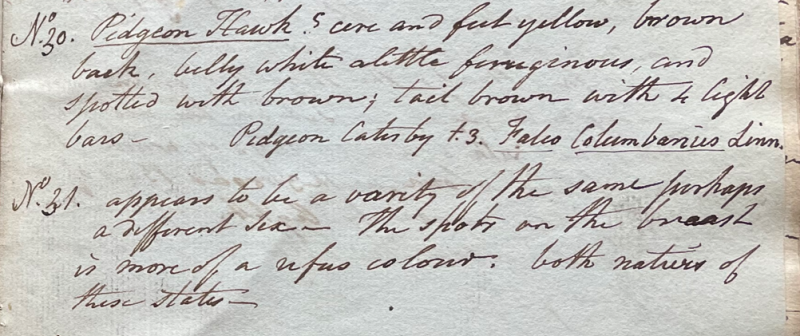 No. 30. Pidgeon Hawk. S cere and feet yellow, brown
back, belly white alittle feruginous, and
spotted with brown; tail brown with 4 light
bars— Pidgeon Catesby t. 3. Falco Columbarius Linn.
No. 31. appears to be a varity of the same perhaps
a different sex— The spots on the breast
is more of a rufus colour. both natives of
these states—